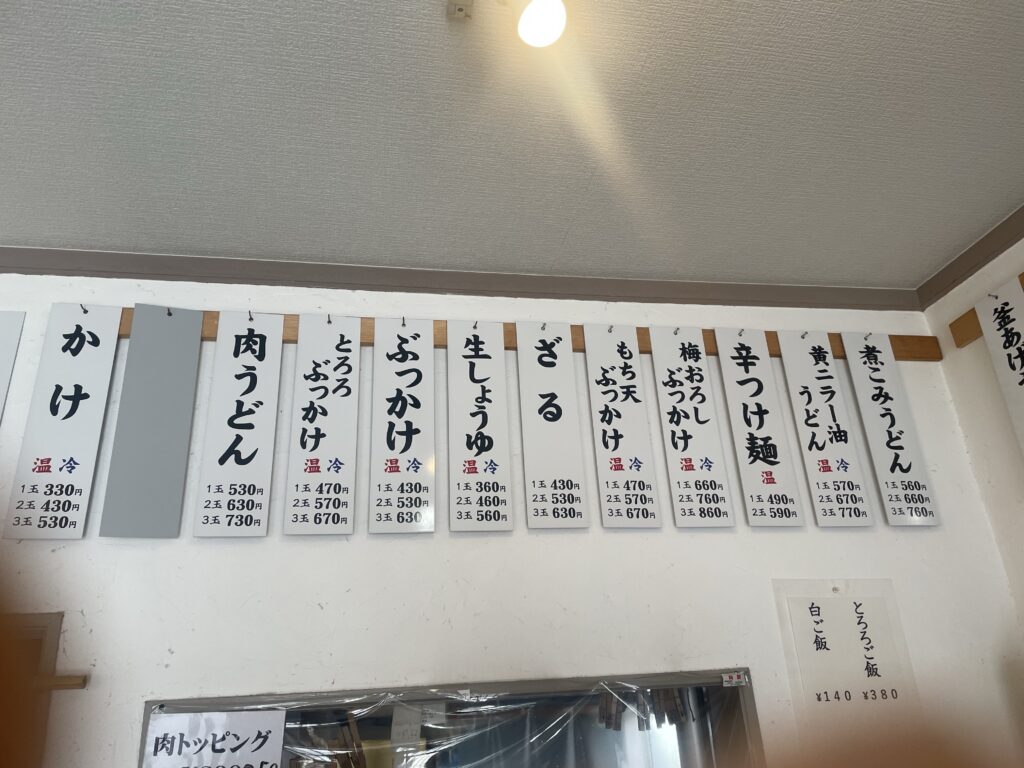 かけ
温 冷
1玉 330円
2玉 430円
3玉 530円
肉うどん
1玉 530円
2玉 630円
3玉 730円
とろろ
ぶっかけ
温 冷
1玉 470円
2玉 570円
3玉 670円
ぶっかけ
温 冷
1玉 430円
2玉 530円
3玉 630
生しょうゆ
温 冷
1玉 360円
2玉 460円
3玉 560円
ざる
1玉 430円
2玉 530円
3玉 630円
もち天
ぶっかけ
温 冷
1玉 470円
2玉 570円
3玉 670円
梅おろし
ぶっかけ
温 冷
1玉 660円
2玉 760円
3玉 860円
辛つけ麺
温
1玉 490円
2玉 590円
黄ニラー油
うどん
温 冷
1玉 570円
2玉 670円
3玉 770円
煮こみうどん
1玉 560円
2玉 660円
3玉 760円
釜あげ
とろろご飯
¥380
白ご飯
¥140
肉トッピング